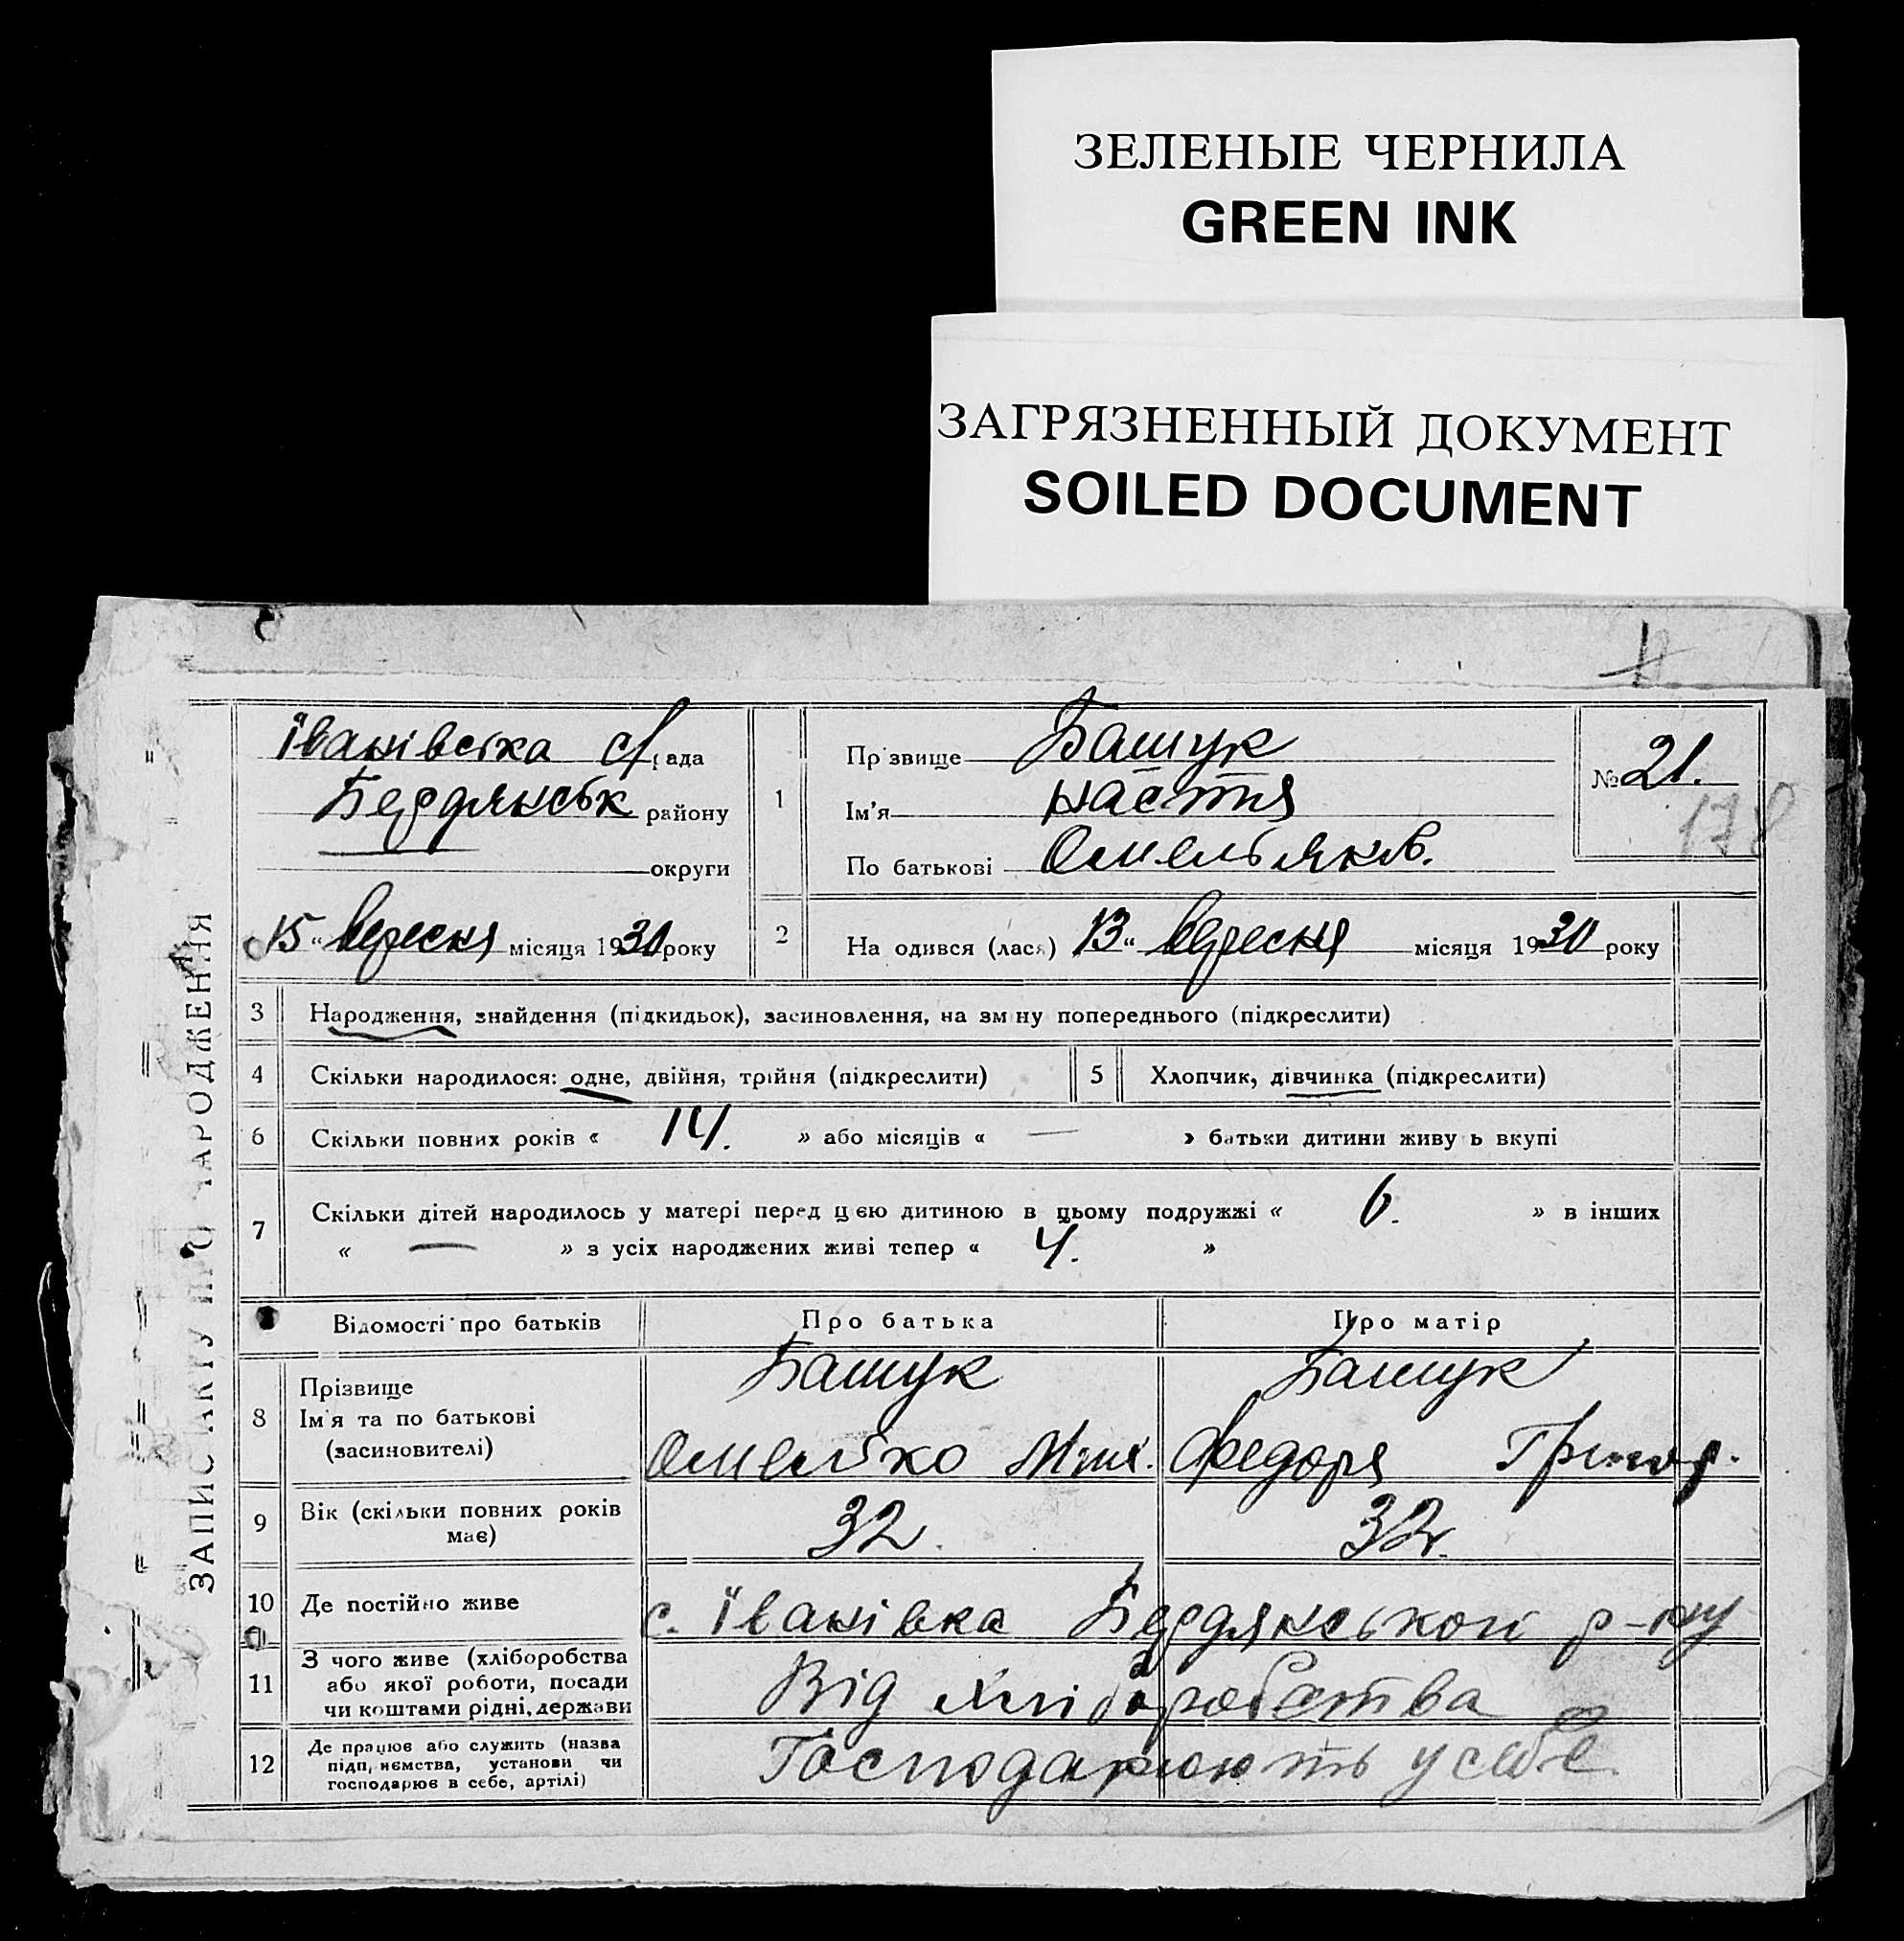 ЗЕЛЕНЫЕ ЧЕРНИЛА
GREEN INK
ЗАГРЯЗНЕННЫЙ ДОКУМЕНТ
SOILED DOCUMENT
ЗАПИС АКТУ ПРО НАРОДЖЕННЯ
Іванівська с/рада
Бердянськ району
округи
15 „ вересня місяця 1930 року
1
Прізвище Башук
Ім'я Настя
По батькові Омельянів.
№ 21.
178
2 На одився (лася) 13 „ вересня місяця 1930 року
3 Народження, знайдення (підкидьок), засиновлення, на зміну попереднього (підкреслити)
4 Скільки народилося: одне, двійня, трійня (підкреслити) 5 Хлопчик, дівчинка (підкреслити)
6 Скільки повних років « 14. » або місяців « — » батьки дитини живу ь вкупі
7 Скільки дітей народилось у матері перед цією дитиною в цьому подружжі « 6. » в інших
« — » з усіх народжених живі тепер « 4. »
Відомості про батьків Про батька Про матір
8 Прізвище
Ім'я та по батькові
(засиновителі)
Башук Башук
Омелько Федора Григор.
9 Вік (скільки повних років
має)
32. 32.
10 Де постійно живе с. Іванівка Бердянської р-ну
11 З чого живе (хліборобства
або якої роботи, посади
чи коштами рідні, держави
Від хліборобства
12 Де працює або служить (назва
підприємства, установи чи
господарює в себе, артілі)
Господарюють у себе